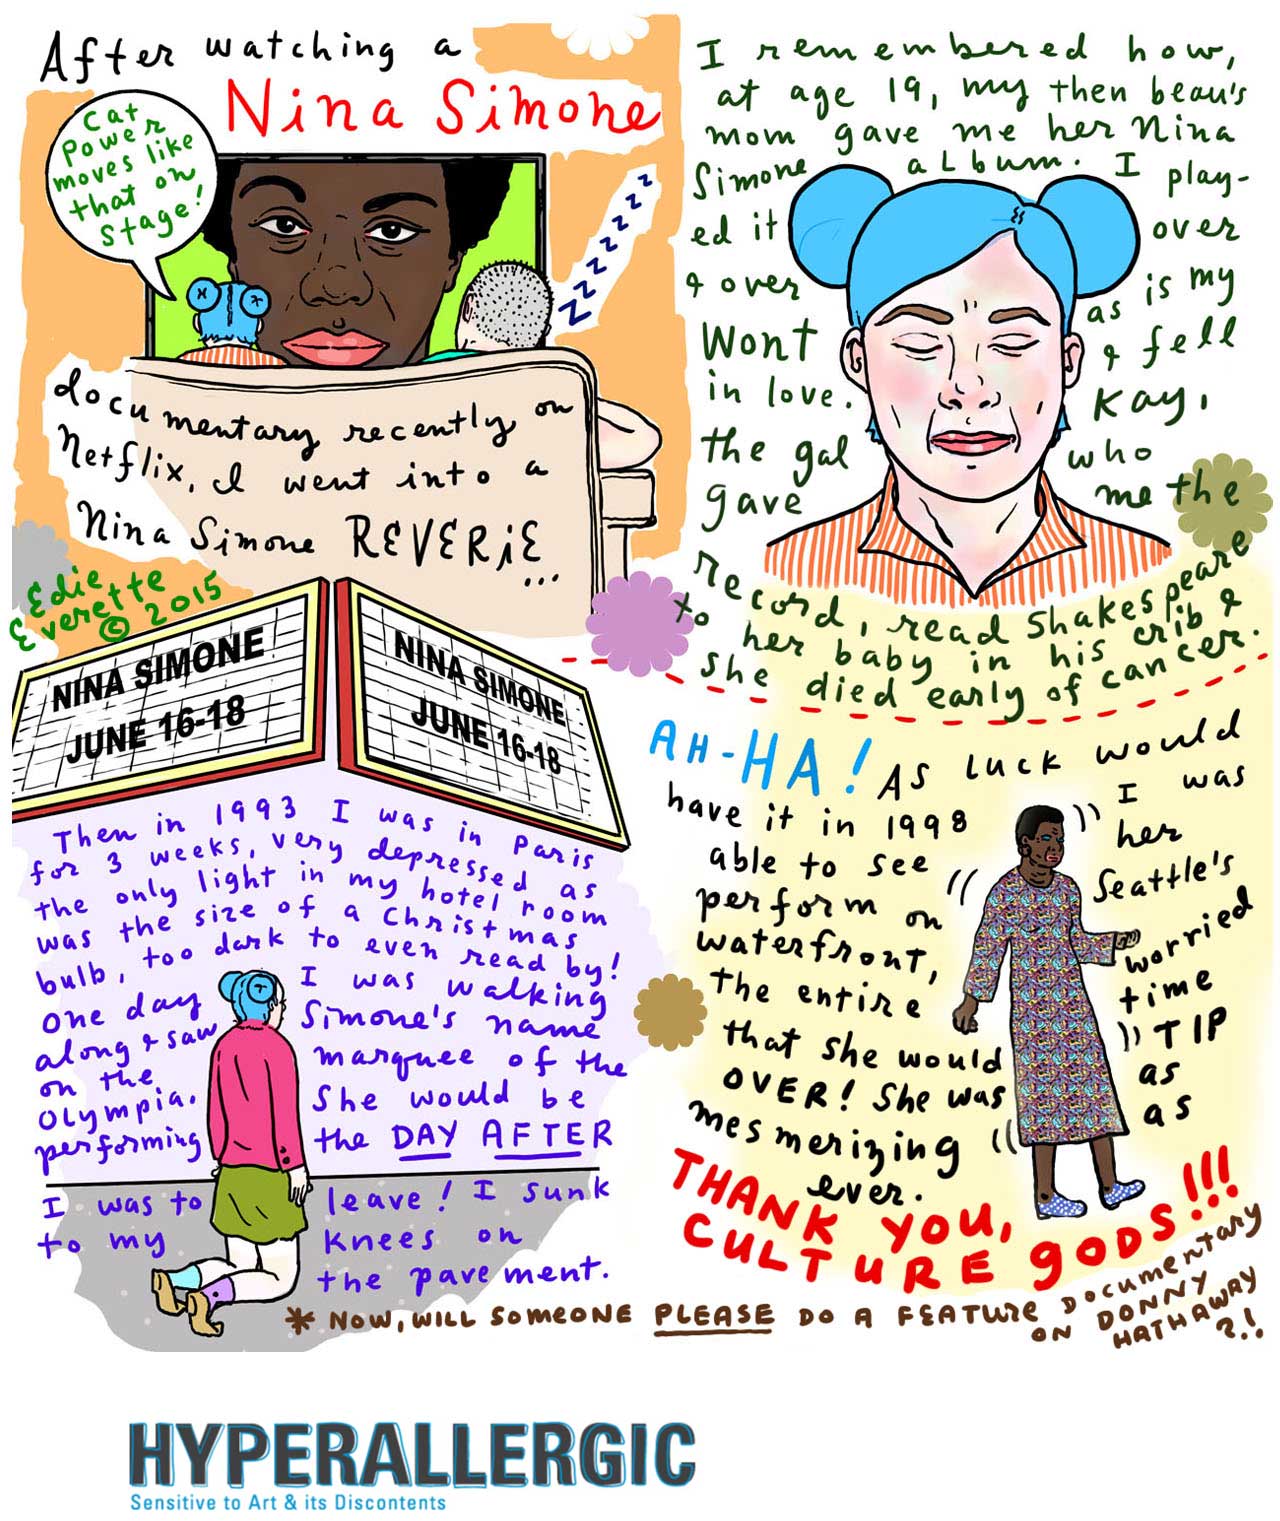 After watching a
Nina Simone
cat
power
moves like
that on
stage!
zzzzzzzz
documentary recently on
Netflix, I went into a
Nina Simone REVERiE
...
Edie
Everette
© 2015
I remembered how,
at age 19, my then beau's
mom gave me her Nina
Simone album. I play-
ed it over
& over as is my
Wont & fell
in love. Kay,
the gal who
gave me the
record, read Shakespeare
to her baby in his crib &
she died early of cancer.
NINA SIMONE
JUNE 16-18
NINA SIMONE
JUNE 16-18
Then in 1993 I was in Paris
for 3 weeks, very depressed as
the only light in my hotel room
was the size of a Christmas
bulb, too dark to even read by!
One day I was walking
along & saw Simone's name
on the marquee of the
Olympia. She would be
performing the DAY AFTER
I was to leave! I sunk
to my knees on
the pavement.
AH-HA! As luck would
have it in 1998 I was
able to see her
perform on Seattle's
waterfront, worried
the entire time
that she would TIP
OVER! She was as
mesmerizing as
ever.
THANK YOU,
CULTURE gODS!!!
* NOW, WILL SOMEONE PLEASE DO A FEATURE DOCUMENTARY
ON DONNY
HATHAWAY
?.!
HYPERALLERGIC
Sensitive to Art & its Discontents